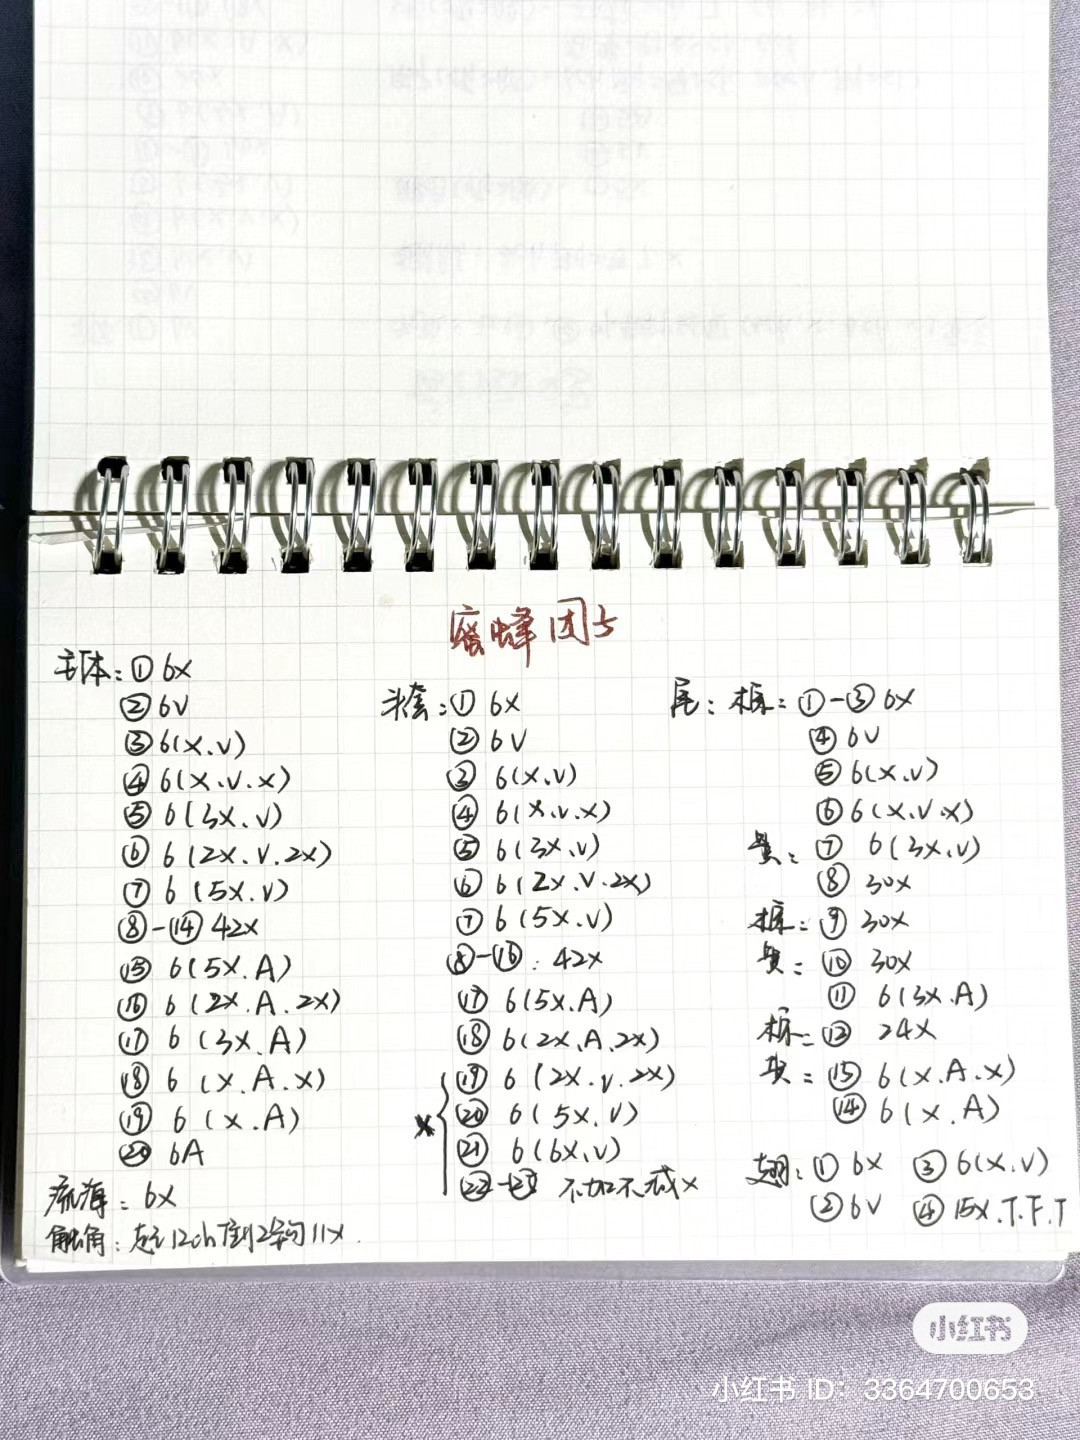 蜜蜂团子
主体：① 6X
② 6V
③ 6(X.V)
④ 6(X.V.X)
⑤ 6(3X.V)
⑥ 6(2X.V.2X)
⑦ 6(5X.V)
⑧-⑭ 42X
⑮ 6(5X.A)
⑯ 6(2X.A.2X)
⑰ 6(3X.A)
⑱ 6(X.A.X)
⑲ 6(X.A)
⑳ 6A
流海：6X
触角：起12ch倒2针钩11X.
头套：① 6X
② 6V
③ 6(X.V)
④ 6(X.V.X)
⑤ 6(3X.V)
⑥ 6(2X.V.2X)
⑦ 6(5X.V)
⑧-⑯：42X
⑰ 6(5X.A)
⑱ 6(2X.A.2X)
⑲ 6(2X.V.2X)
⑳ 6(5X.V)
㉑ 6(6X.V)
不加不减X
尾：棕：①-③ 6X
④ 6V
⑤ 6(X.V)
⑥ 6(X.V.X)
黄：⑦ 6(3X.V)
⑧ 30X
棕：⑨ 30X
黄：⑩ 30X
⑪ 6(3X.A)
棕：24X
⑬ 6(X.A.X)
⑭ 6(X.A)
翅：① 6X ③ 6(X.V)
② 6V ④ 15X.T.F.T
小红书
小红书 ID：3364700653